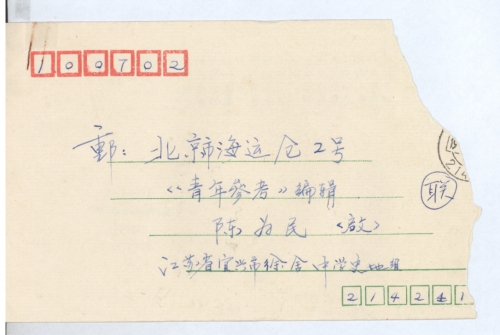 100702
邮: 北京市海运仓2号
《青年参考》编辑
陈为民 (启)
联
江苏省宜兴市徐舍中学史地组
214241